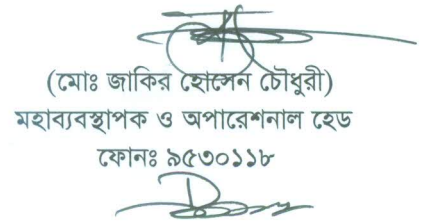 (মোঃ জাকির হোসেন চৌধুরী)
মহাব্যবস্থাপক ও অপারেশনাল হেড
ফোনঃ ৯৫৩০১১৮